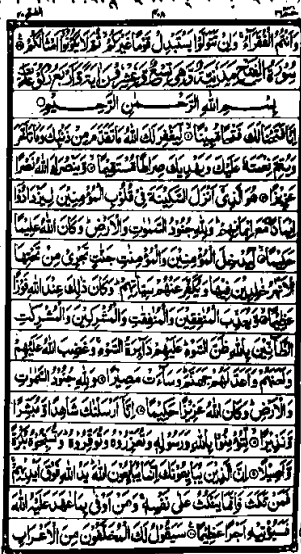 وَاَنْتُمُ الْفُقَرَآءُ وَاِنْ تَتَوَلَّوْا يَسْتَبْدِلْ قَوْمًا غَيْرَكُمْ ثُمَّ لَا يَكُوْنُوْٓا اَمْثَالَكُمْ
سُوْرَةُ الْفَتْحِ مَدَنِيَّةٌ وَّهِيَ تِسْعٌ وَّعِشْرُوْنَ اٰيَةً
بِسْمِ اللهِ الرَّحْمٰنِ الرَّحِيْمِ
اِنَّا فَتَحْنَا لَكَ فَتْحًا مُّبِيْنًا لِّيَغْفِرَ لَكَ اللهُ مَا تَقَدَّمَ مِنْ ذَنْۢبِكَ وَمَا تَاَخَّرَ
وَيُتِمَّ نِعْمَتَهٗ عَلَيْكَ وَيَهْدِيَكَ صِرَاطًا مُّسْتَقِيْمًا وَّيَنْصُرَكَ اللهُ نَصْرًا
عَزِيْزًا هُوَ الَّذِيْٓ اَنْزَلَ السَّكِيْنَةَ فِيْ قُلُوْبِ الْمُؤْمِنِيْنَ لِيَزْدَادُوْٓا
اِيْمَانًا مَّعَ اِيْمَانِهِمْ وَلِلهِ جُنُوْدُ السَّمٰوٰتِ وَالْاَرْضِ وَكَانَ اللهُ عَلِيْمًا
حَكِيْمًا لِّيُدْخِلَ الْمُؤْمِنِيْنَ وَالْمُؤْمِنٰتِ جَنّٰتٍ تَجْرِيْ مِنْ تَحْتِهَا
الْاَنْهٰرُ خٰلِدِيْنَ فِيْهَا وَيُكَفِّرَ عَنْهُمْ سَيِّاٰتِهِمْ وَكَانَ ذٰلِكَ عِنْدَ اللهِ فَوْزًا
عَظِيْمًا وَّيُعَذِّبَ الْمُنٰفِقِيْنَ وَالْمُنٰفِقٰتِ وَالْمُشْرِكِيْنَ وَالْمُشْرِكٰتِ
الظَّآنِّيْنَ بِاللهِ ظَنَّ السَّوْءِ عَلَيْهِمْ دَآئِرَةُ السَّوْءِ وَغَضِبَ اللهُ عَلَيْهِمْ
وَلَعَنَهُمْ وَاَعَدَّ لَهُمْ جَهَنَّمَ وَسَآءَتْ مَصِيْرًا وَلِلهِ جُنُوْدُ السَّمٰوٰتِ
وَالْاَرْضِ وَكَانَ اللهُ عَزِيْزًا حَكِيْمًا اِنَّآ اَرْسَلْنٰكَ شَاهِدًا وَّمُبَشِّرًا
وَّنَذِيْرًا لِّتُؤْمِنُوْا بِاللهِ وَرَسُوْلِهٖ وَتُعَزِّرُوْهُ وَتُوَقِّرُوْهُ وَتُسَبِّحُوْهُ بُكْرَةً
وَّاَصِيْلًا اِنَّ الَّذِيْنَ يُبَايِعُوْنَكَ اِنَّمَا يُبَايِعُوْنَ اللهَ يَدُ اللهِ فَوْقَ اَيْدِيْهِمْ
فَمَنْ نَّكَثَ فَاِنَّمَا يَنْكُثُ عَلٰى نَفْسِهٖ وَمَنْ اَوْفٰى بِمَا عٰهَدَ عَلَيْهُ اللهَ
فَسَيُؤْتِيْهِ اَجْرًا عَظِيْمًا سَيَقُوْلُ لَكَ الْمُخَلَّفُوْنَ مِنَ الْاَعْرَابِ